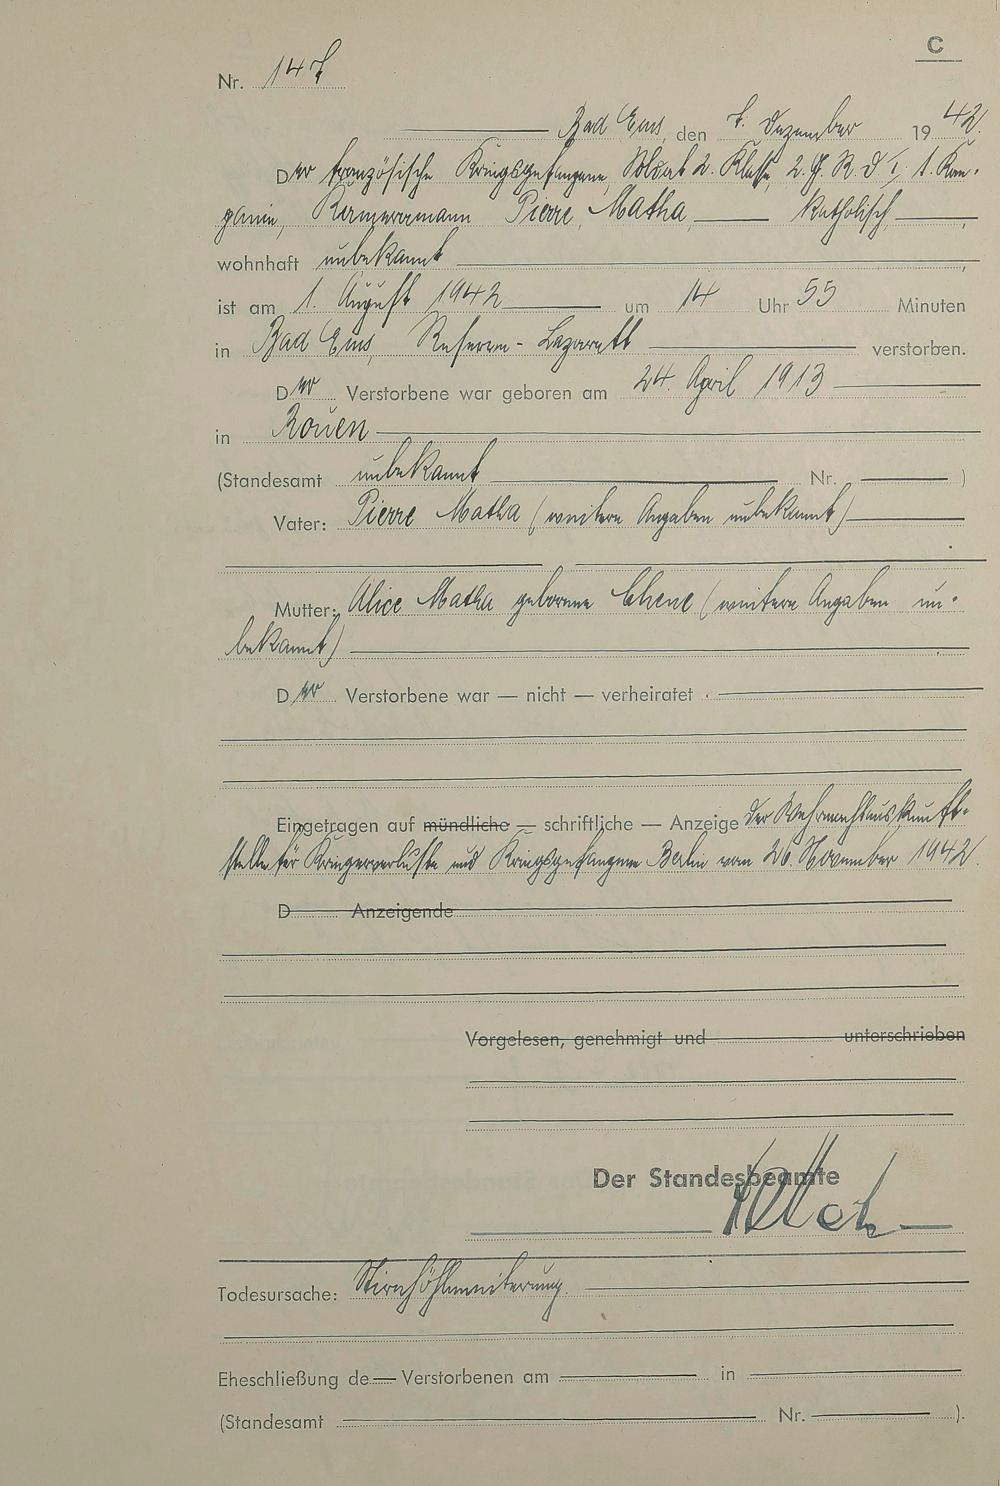 C
Nr. 147
Bad Ems, den 7. Dezember 1942.
Der französische Kriegsgefangene, Soldat 2. Klasse, 2. 1. Kom-
panie, Pierre Matha, katholisch,
wohnhaft unbekannt
ist am 1. August 1942 um 14 Uhr 55 Minuten
in Bad Ems, Reserve-Lazarett verstorben.
Der Verstorbene war geboren am 24. April 1913
in Rouen
(Standesamt unbekannt Nr. )
Vater: Pierre Matha (weitere Angaben unbekannt)
Mutter: Alice Matha geborene Chene (weitere Angaben un-
bekannt)
Der Verstorbene war — nicht — verheiratet.
Eingetragen auf mündliche — schriftliche — Anzeige der Wehrmachtauskunft-
stelle für Kriegerverluste und Kriegsgefangene Berlin vom 26. November 1942.
D Anzeigende
Vorgelesen, genehmigt und unterschrieben
Der Standesbeamte
Todesursache: Stirnhöhleneiterung.
Eheschließung de Verstorbenen am in
(Standesamt Nr. ).